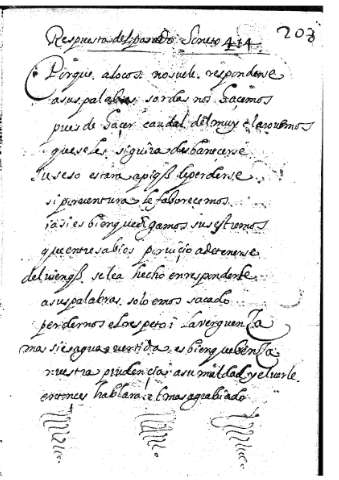 203
Respuesta del pasado Soneto 414
Porque a locos no suele responderse
a sus palabras sordas nos hacemos
pues de hacer caudal del muy claro vemos
que se les siguira desbanecerse
Su seso estara a piq̃ de perderse
si por ventura le faborecemos
i asi es bien que digamos sus estremos
que entre sabios por vicio a de tenerse
del tiempo se lea hecho en responderle
a sus palabras solo emos sacado
perdernos el respeto i la verguenza
mas si es agua vertida es bien que benza
nuestra prudencia a su maldad
entonces hablara el mas agrabiado